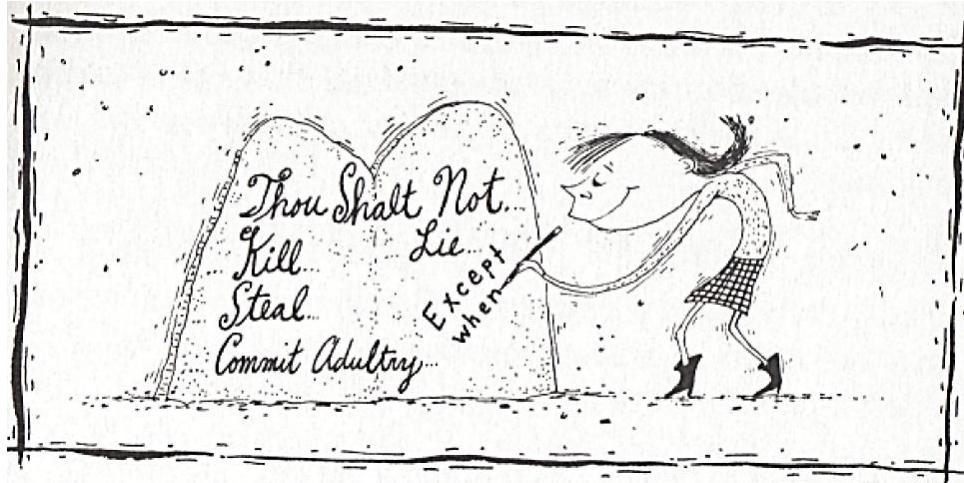 Thou Shalt Not...
Kill...
Lie
Steal...
Commit Adultry...
Except
when